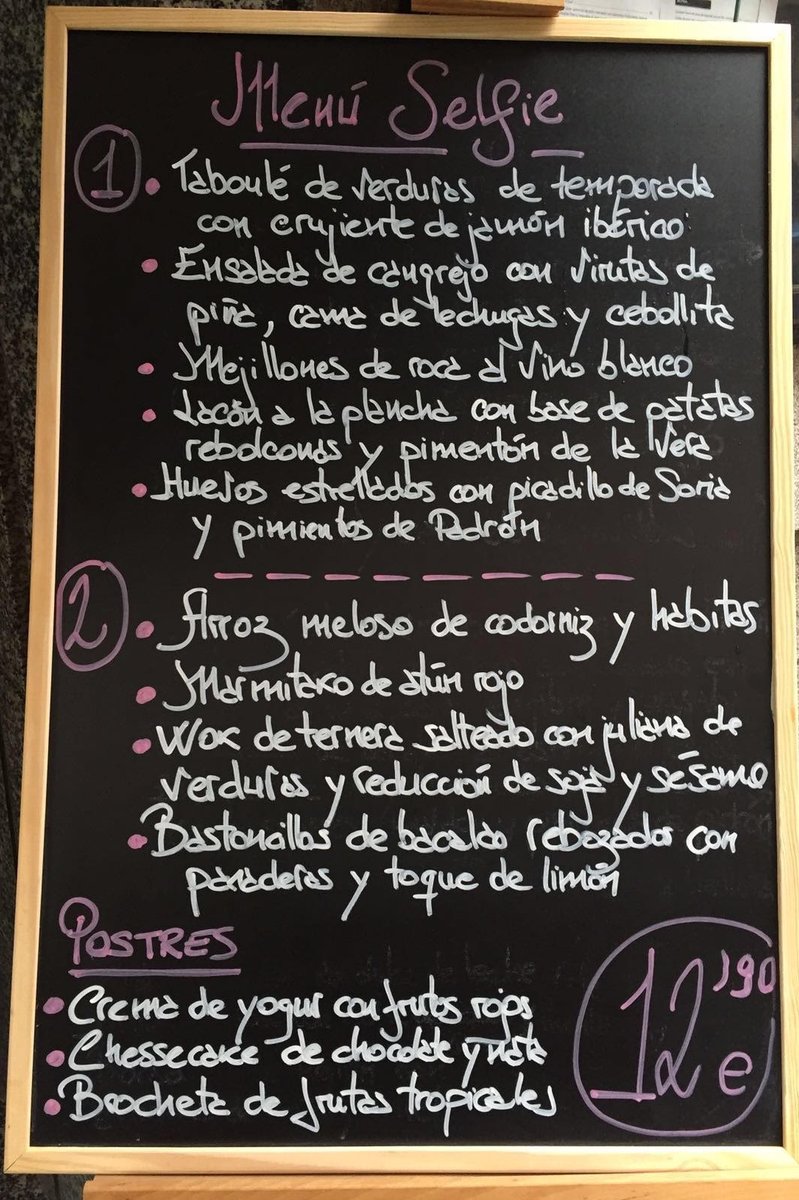 Menú Selfie
1 • Taboulé de verduras de temporada
con crujiente de jamón ibérico
• Ensalada de cangrejo con virutas de
piña, cama de lechugas y cebollita
• Mejillones de roca al vino blanco
• Lacón a la plancha con base de patatas
rebolconas y pimentón de la Vera
• Huevos estrellados con picadillo de Soria
y pimientos de Padrón
2 • Arroz meloso de codorniz y habitas
• Marmitako de atún rojo
• Wok de ternera salteado con juliana de
verduras y reducción de soja y sésamo
• Bastoncillos de bacalao rebozados con
panaderas y toque de limón
Postres
• Crema de yogur con frutos rojos
• Chessecake de chocolate y nata
• Brocheta de frutas tropicales
12'90 e